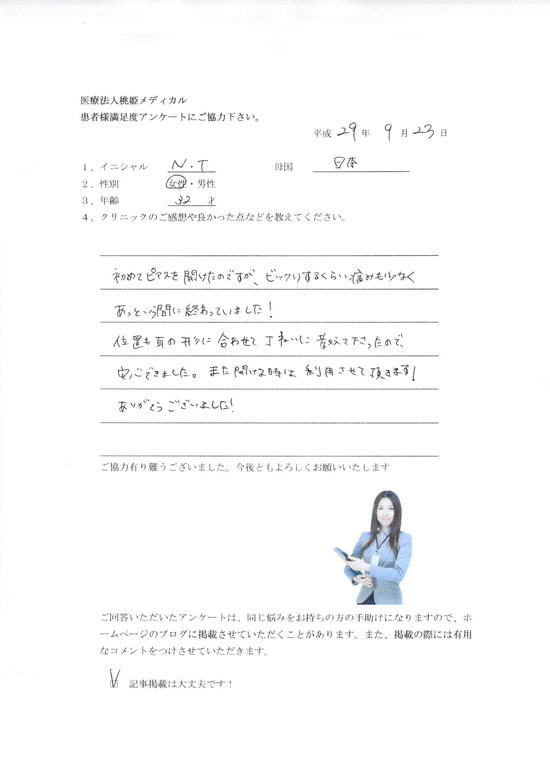 医療法人桃姫メディカル
患者様満足度アンケートにご協力下さい。
平成 29 年 9 月 23 日
1、イニシャル N.T 母国 日本
2、性別 女性・男性
3、年齢 32 才
4、クリニックのご感想や良かった点などを教えてください。
初めてピアスを開けたのですが、ビックリするくらい痛みも少なく
あっという間に終わっていました!
位置も耳の形に合わせて丁ねいに教えて下さったので、
安心できました。また開ける時は利用させて頂きます!
ありがとうございました!
ご協力有り難うございました。今後ともよろしくお願いいたします
ご回答いただいたアンケートは、同じ悩みをお持ちの方の手助けになりますので、ホ
ームページのブログに掲載させていただくことがあります。また、掲載の際には有用
なコメントをつけさせていただきます。
記事掲載は大丈夫です!